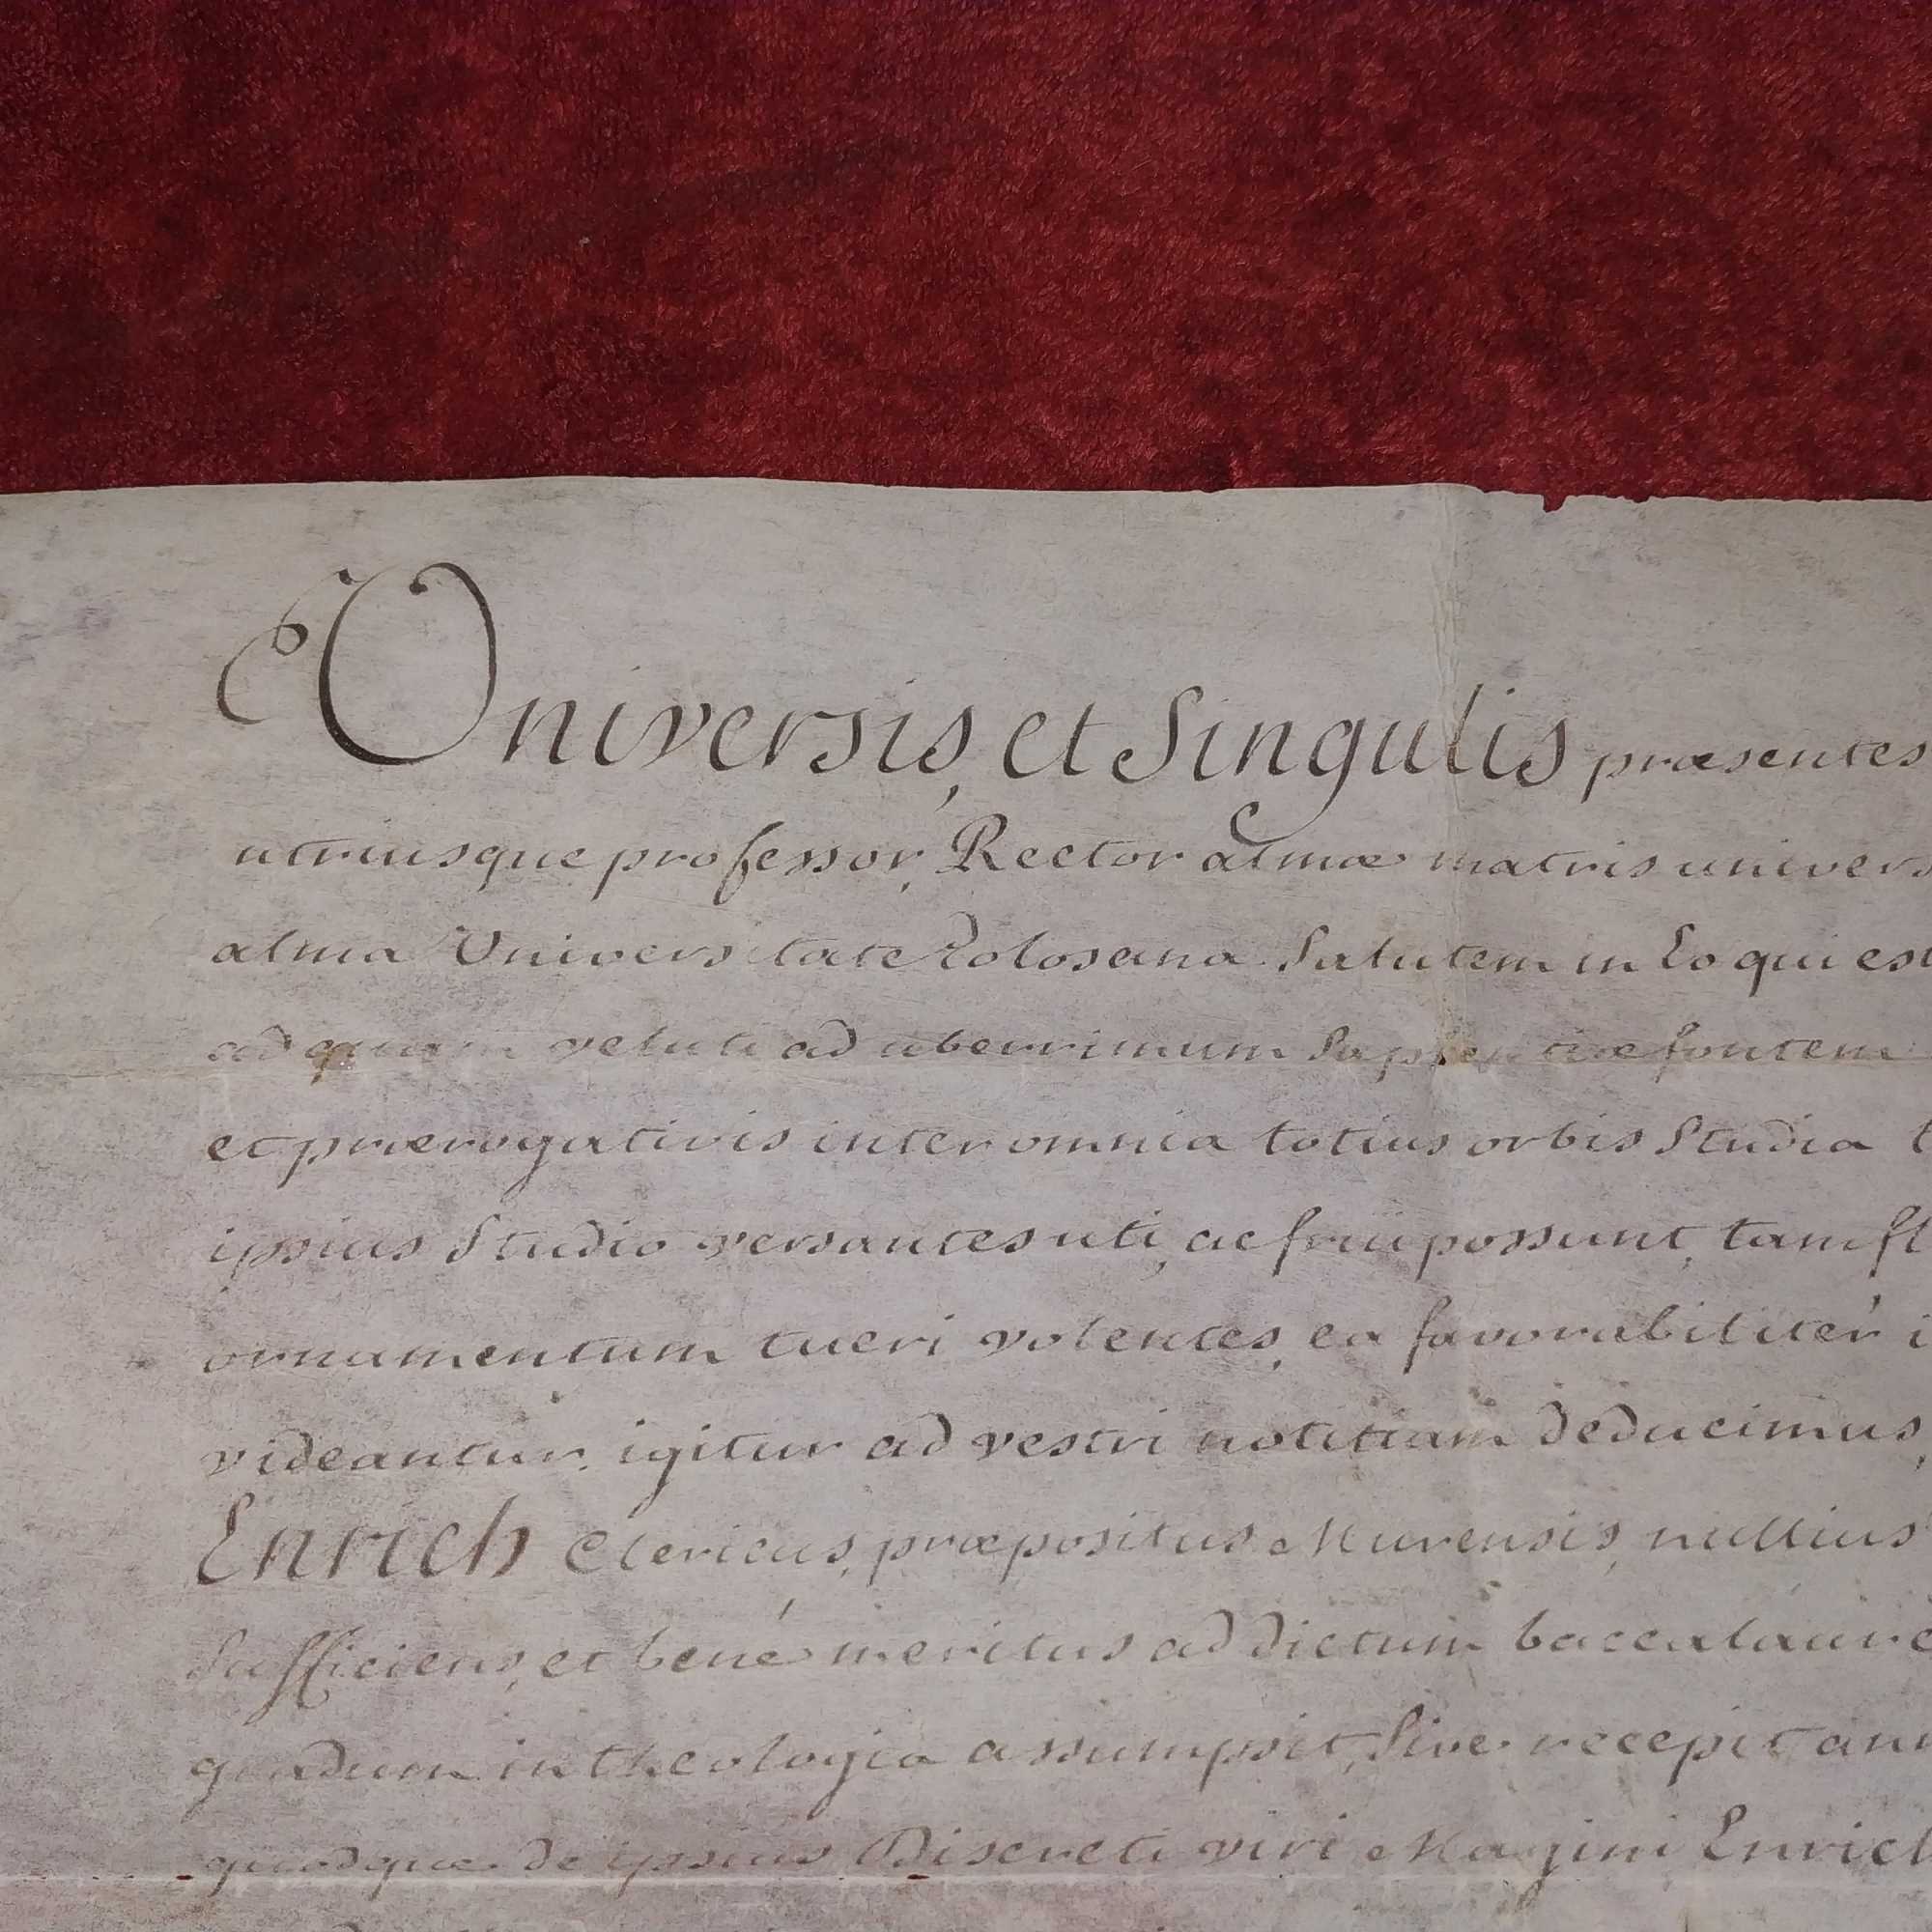 Universis, et Singulis præsentes
utriusque professor, Rector almæ matris univers
alma Universitate Tolosana Salutem in Eo qui est
ad quam veluti ad uberrimum Sapientiæ fontem
et prærogativis inter omnia totius orbis Studia t
ipsius Studio versantes uti, ac frui possunt, tam fl
ornamentum tueri volentes, ea favorabilitér i
videantur. igitur ad vestri notitiam deducimus,
Enrich Clericus, præpositus Murensis, nullius
Sufficiens, et bené meritus ad dictum baccalaure
gradum in theologia assumpsit, Sive recepit ann
quodque de ipsius Discreti viri Magini Enrich